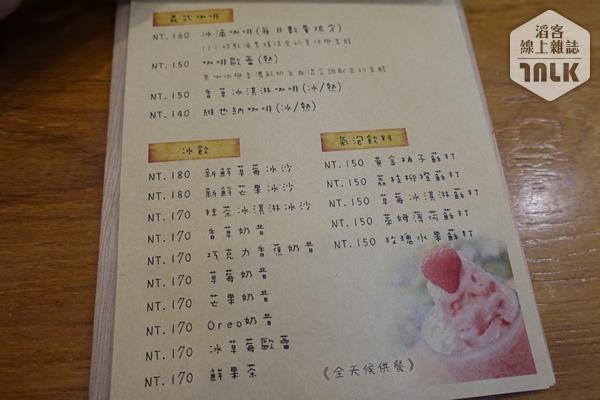 義式咖啡
NT. 160 冰滴咖啡(每日數量限定)
NT. 150 咖啡歐蕾(熱)
NT. 150 香草冰淇淋咖啡(冰/熱)
NT. 140 維也納咖啡(冰/熱)
冰飲
NT. 180 新鮮草莓冰沙
NT. 180 新鮮芒果冰沙
NT. 170 抹茶冰淇淋冰沙
NT. 170 香草奶昔
NT. 170 巧克力香蕉奶昔
NT. 170 草莓奶昔
NT. 170 芒果奶昔
NT. 170 Oreo奶昔
NT. 170 冰草莓歐蕾
NT. 170 鮮果茶
氣泡飲料
NT. 150 黃金柚子蘇打
NT. 150 荔枝柳橙蘇打
NT. 150 草莓冰淇淋蘇打
NT. 150 萊姆薄荷蘇打
NT. 150 玫瑰水果蘇打
《全天候供餐》
滔客
線上雜誌
TALK